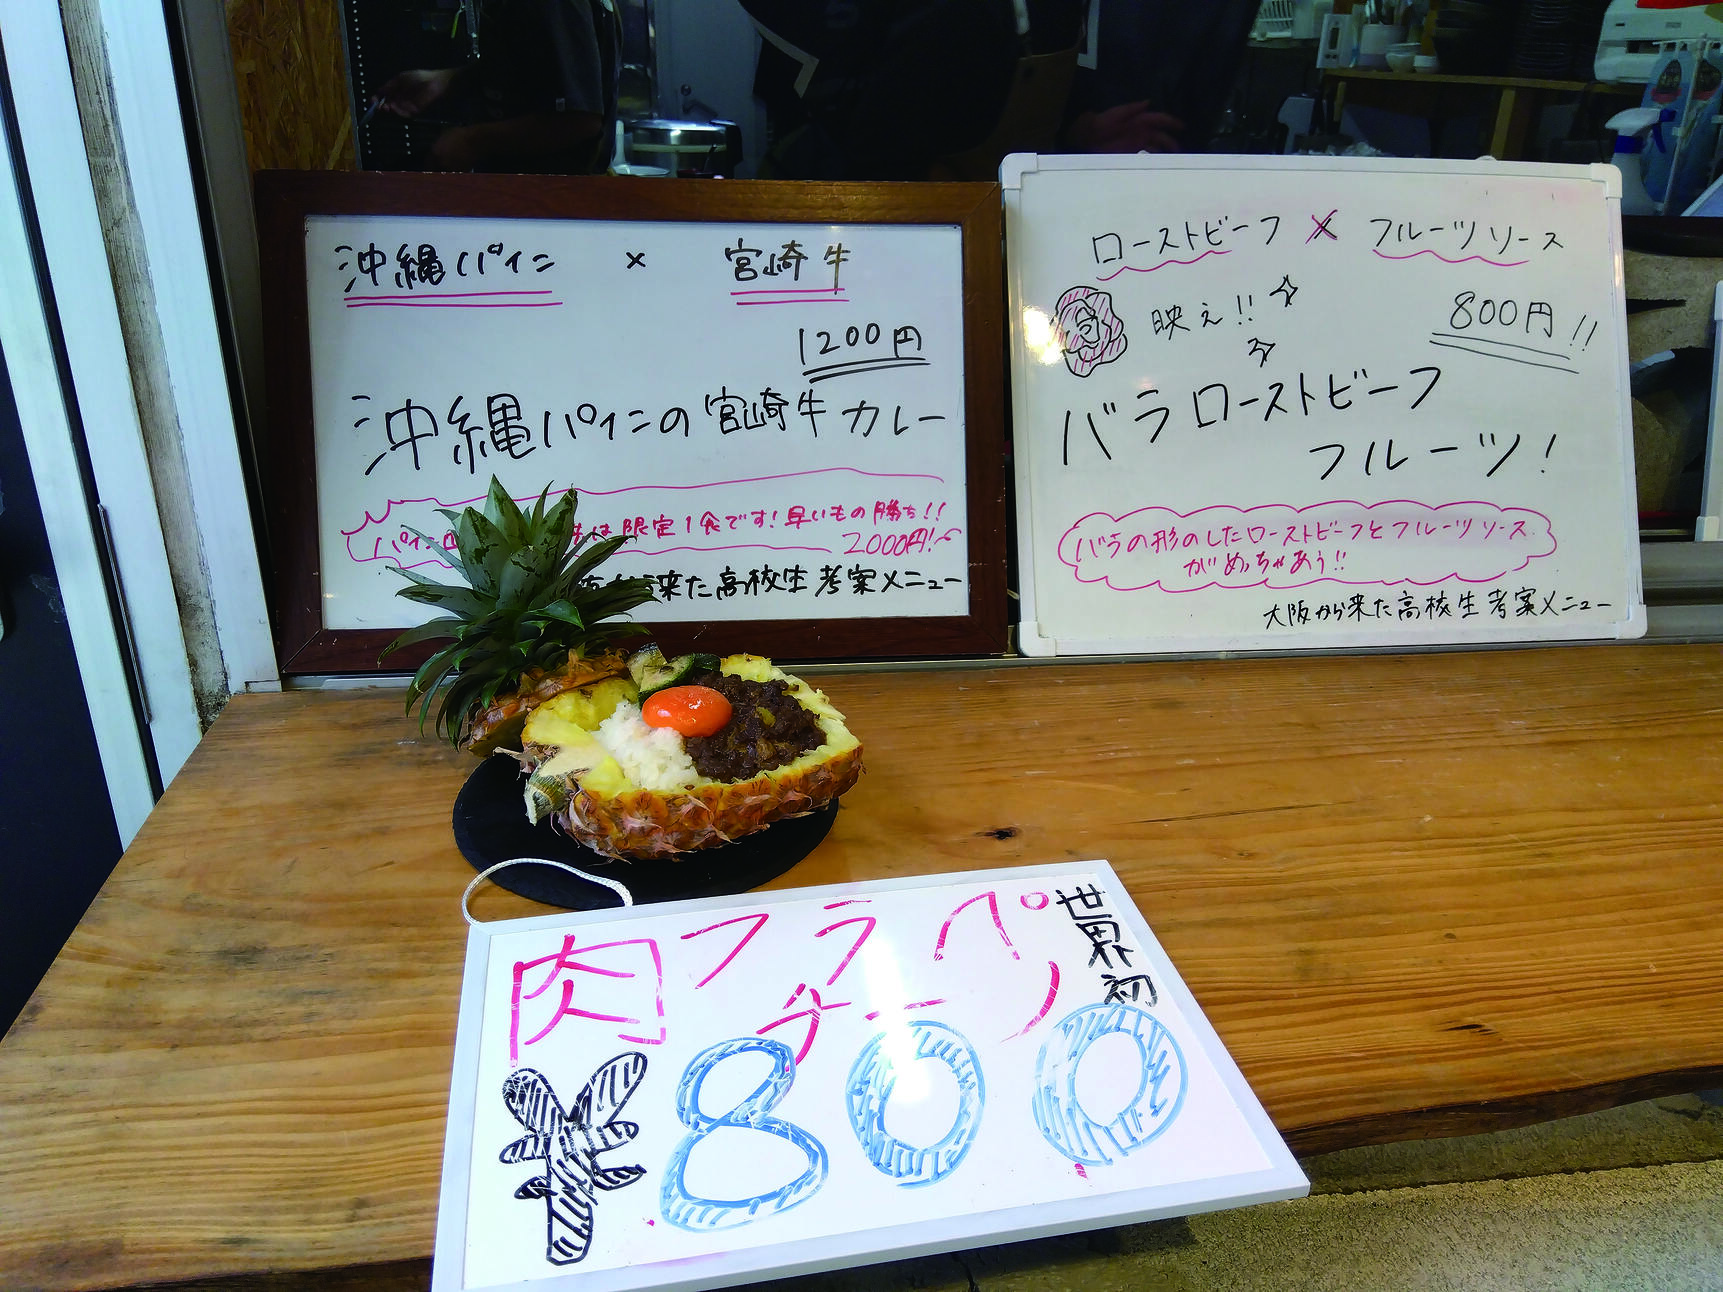 沖縄パイン × 宮崎牛
1200円
沖縄パインの宮崎牛カレー
パイン
は限定1食です!早いもの勝ち!!
2000円!
来た高校生考案メニュー
ローストビーフ × フルーツソース
映え!!
800円!!
バラローストビーフ
フルーツ!
バラの形のしたローストビーフとフルーツソース
がめっちゃあう!!
大阪から来た高校生考案メニュー
世界初
肉フラペ
チーノ
¥800